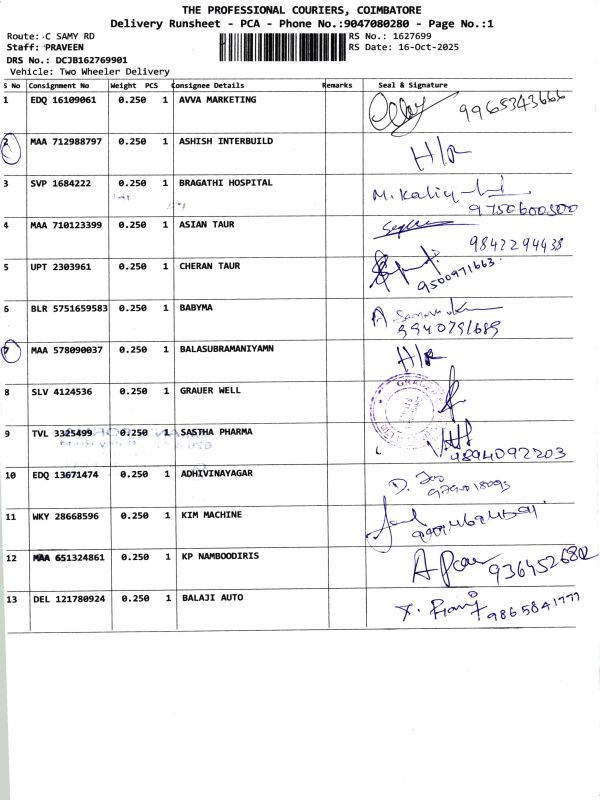 THE PROFESSIONAL COURIERS, COIMBATORE
Delivery Runsheet - PCA - Phone No.:9047080280 - Page No.:1
Route: C SAMY RD RS No.: 1627699
Staff: PRAVEEN RS Date: 16-Oct-2025
DRS No.: DCJB162769901
Vehicle: Two Wheeler Delivery
S No Consignment No Weight PCS Consignee Details Remarks Seal & Signature
1 EDQ 16109061 0.250 1 AVVA MARKETING 9965343666
2 MAA 712988797 0.250 1 ASHISH INTERBUILD H/R
3 SVP 1684222 0.250 1 BRAGATHI HOSPITAL
9750600500
4 MAA 710123399 0.250 1 ASIAN TAUR
9842294438
5 UPT 2303961 0.250 1 CHERAN TAUR
9500971663
6 BLR 5751659583 0.250 1 BABYMA
9940791689
7 MAA 578090037 0.250 1 BALASUBRAMANIYAMN H/R
8 SLV 4124536 0.250 1 GRAUER WELL
9 TVL 3325499 0.250 1 SASTHA PHARMA
9894092203
10 EDQ 13671474 0.250 1 ADHIVINAYAGAR
11 WKY 28668596 0.250 1 KIM MACHINE
12 MAA 651324861 0.250 1 KP NAMBOODIRIS
13 DEL 121780924 0.250 1 BALAJI AUTO 9865841777